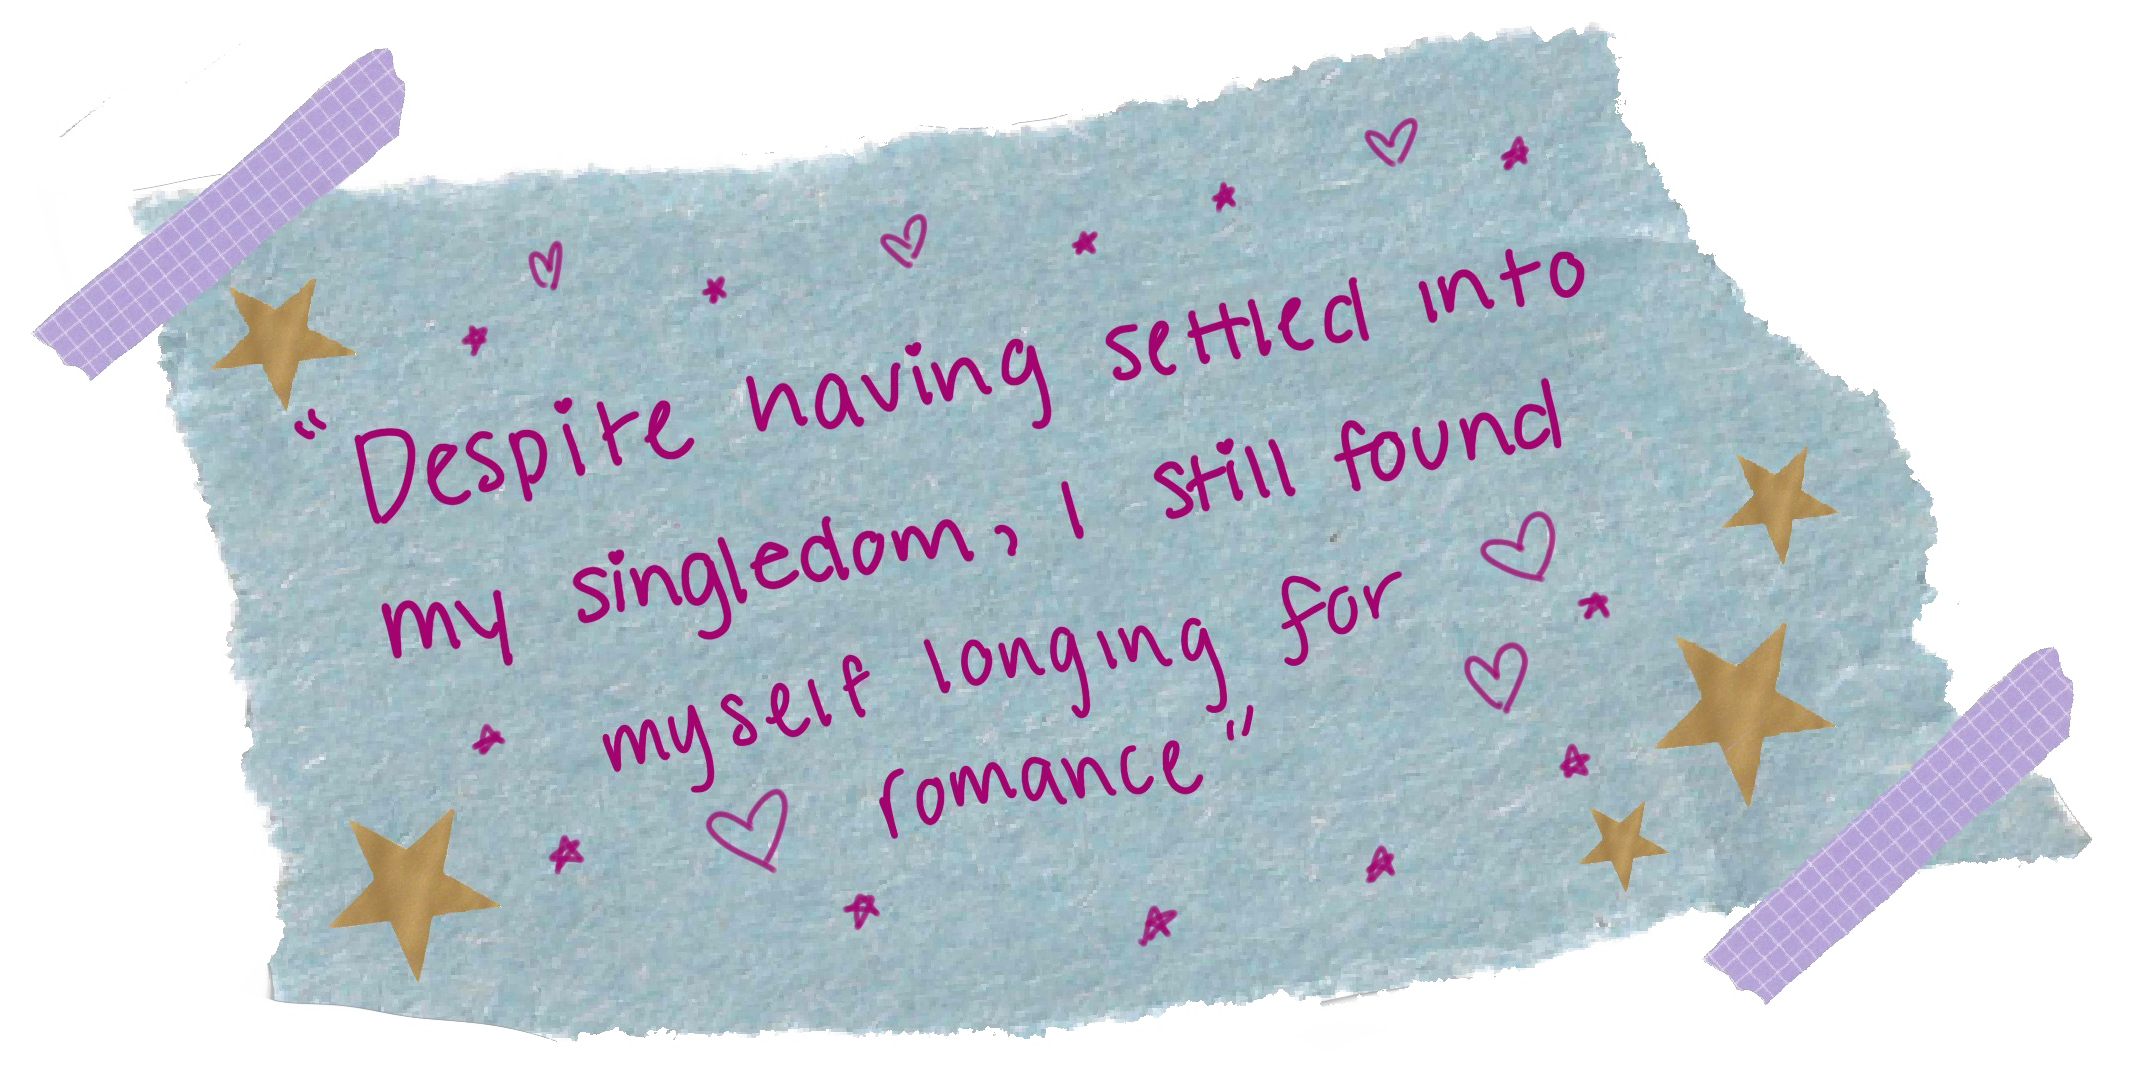 “Despite having settled into
my singledom, I still found
myself longing for
romance”